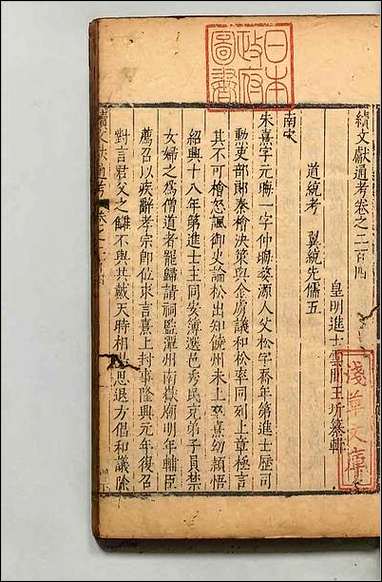 日本
政府
圖書
續文獻通考卷之二百四
皇明進士雲間王圻纂輯
淺草文庫
道統考 翼統先儒五
南宋
朱熹字元晦一字仲晦婺源人父松字喬年第進士歷司
勲吏部郎秦檜決策與金虜議和松率同列上章極言
其不可檜怒諷御史論松出知饒州未上卒熹幼穎悟
紹興十八年第進士主同安簿選邑秀民充弟子員禁
女婦之爲僧道者罷歸請祠監潭州南嶽廟明年輔臣
薦召以疾辭孝宗即位求言熹上封事隆興元年復召
對言君父之讎不與共戴天時相湯思退方倡和議除
續文獻通考 卷之二百四